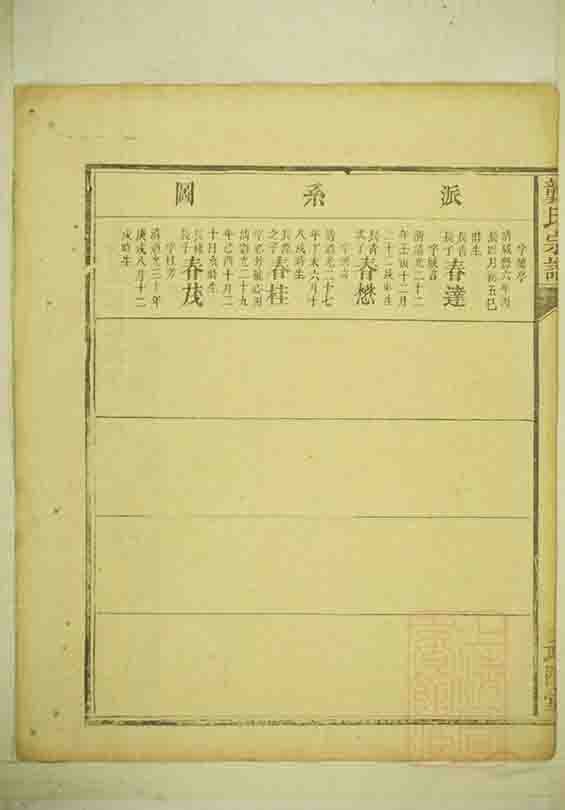 龔氏宗譜
派系圖
亭
清咸豐六年丙
辰四月初五巳
時生
長青
長子
春達
字言
清道光二十二
年壬寅十二月
二十二戌時生
長青
次子
春懋
清道光二十七
年丁未六月十
八戌時生
之子
春桂
清道光二十九
年己酉十月二
十日亥時生
長子
春茂
字桂芳
清道光三十年
庚戌八月十二
戌時生